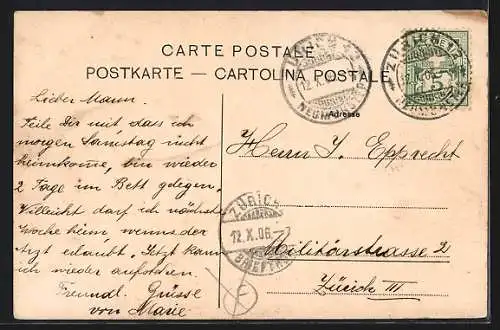 CARTE POSTALE
POSTKARTE — CARTOLINA POSTALE
Adresse
Lieber Mann.
Teile Dir mit dass ich
morgen Samstag nicht
heimkome, bin wieder
2 Tage im Bett gelegen.
Vielleicht darf ich nächste
Woche heim wenns der
Arzt erlaubt. Jetzt kann
ich wieder aufstehen.
Freundl. Grüsse
von Marie
Herrn J. Epprecht
Militärstrasse 2
Zürich III
ZÜRICH
12.X.06
BRIEFTR.
ZÜRICH
12.X.
ZÜRICH
HELVETIA
5